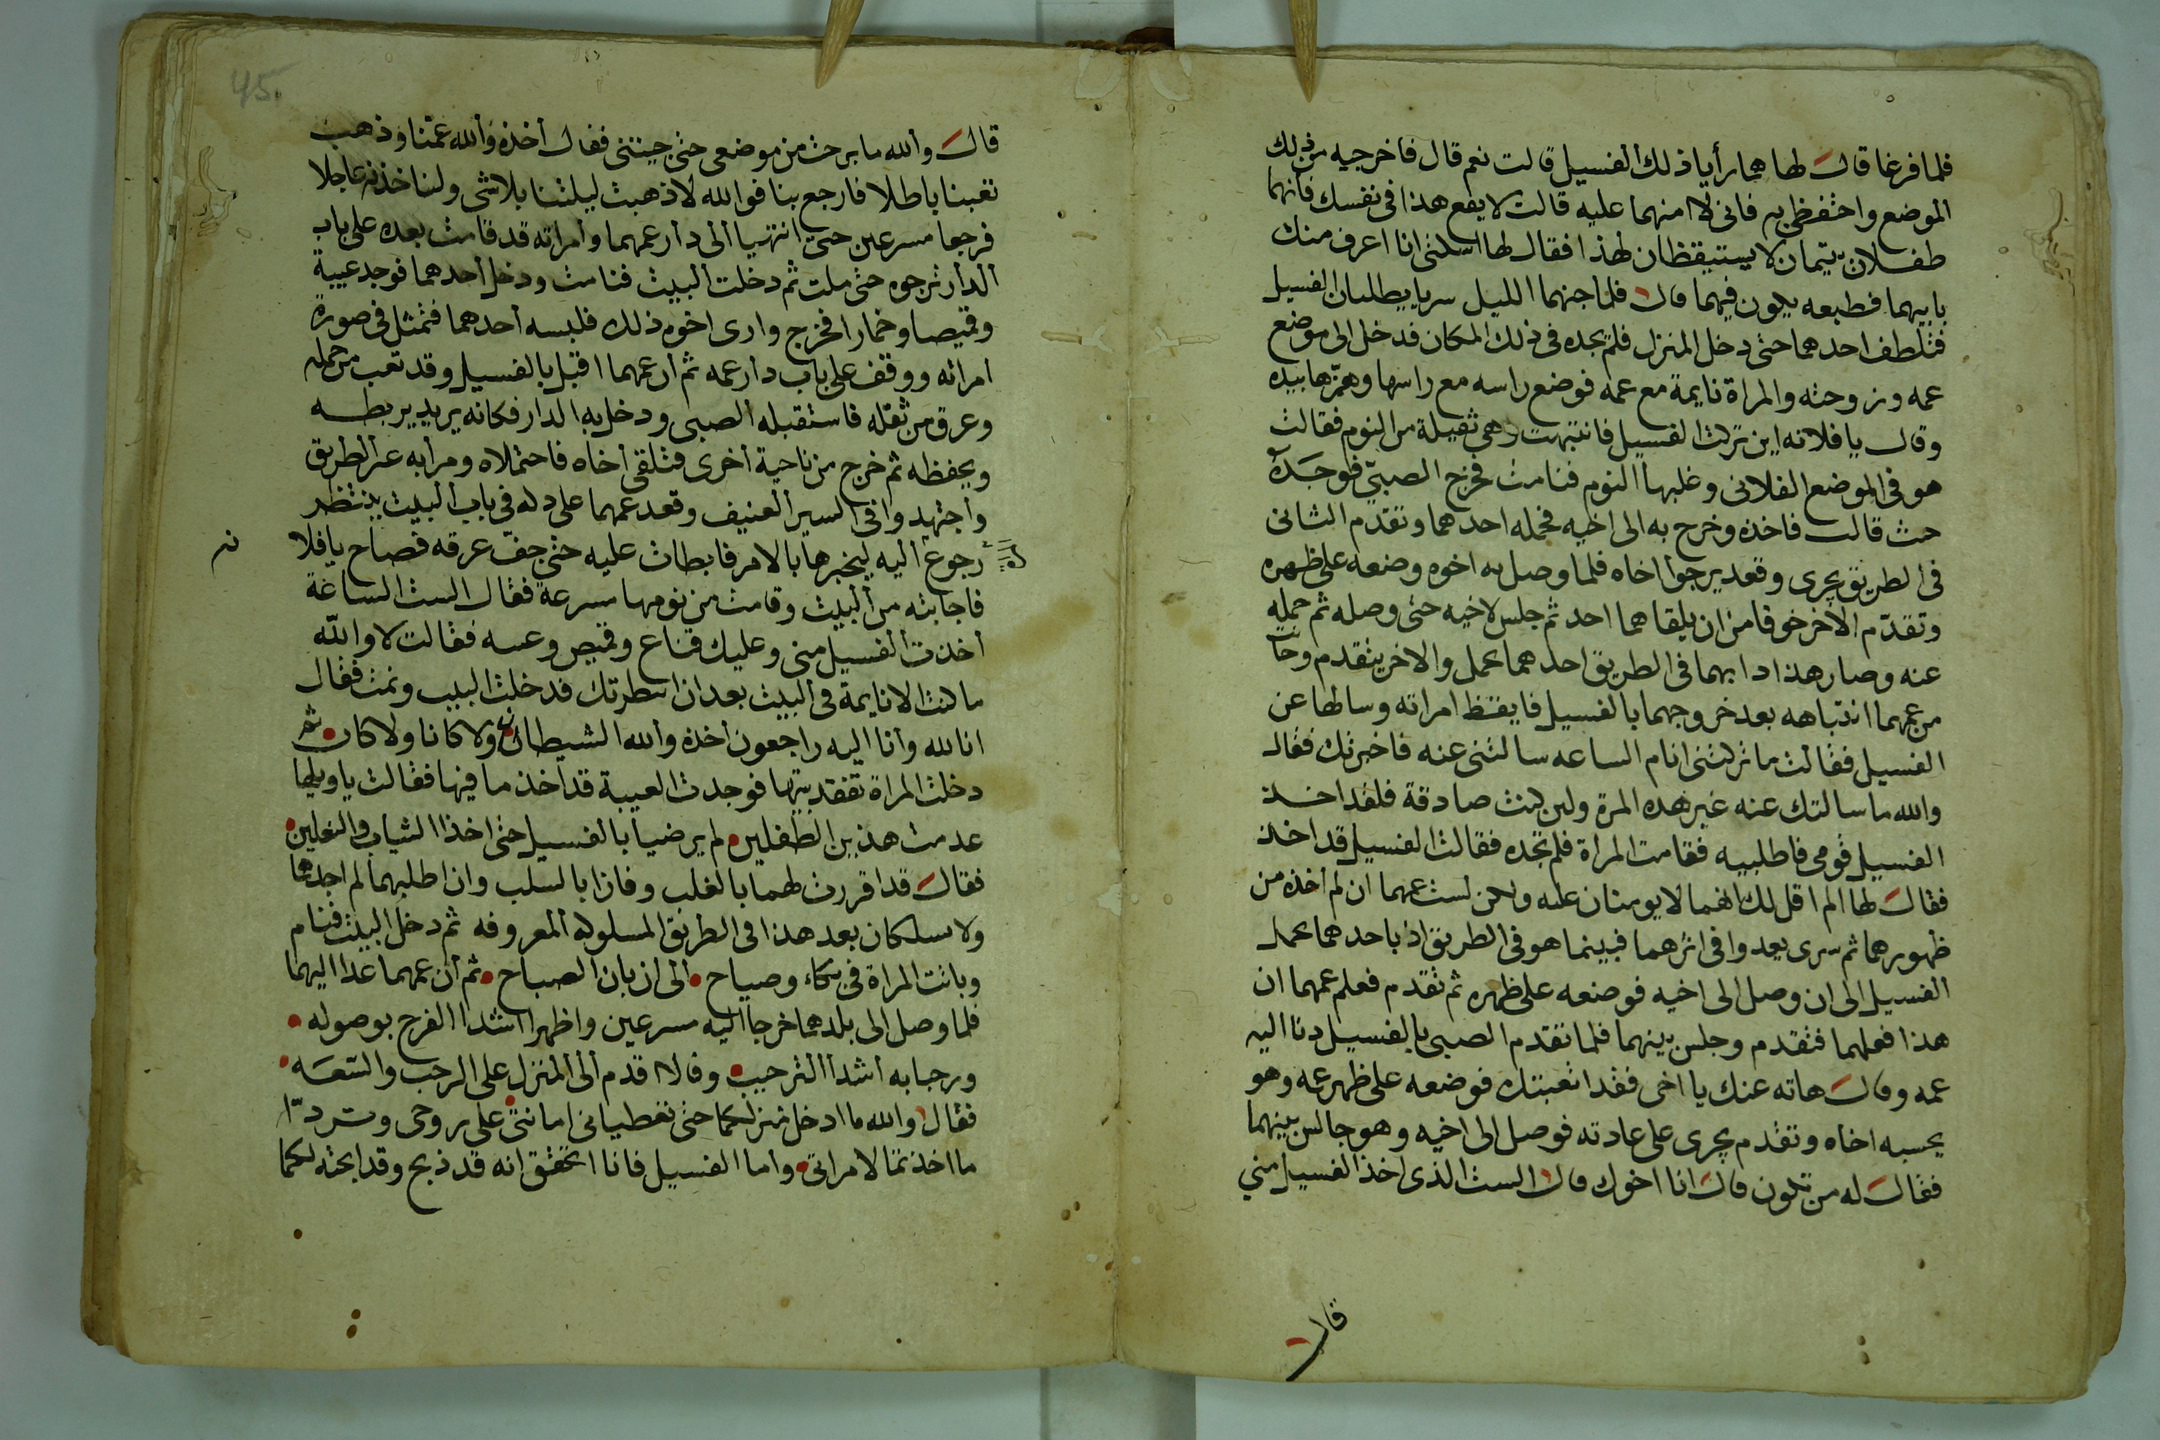 فلما فرغا قال لها هما رأيا ذلك الفسيل قالت نعم قال فاخرجيه من ذلك
الموضع واحتفظي به فانى لا امنهما عليه قالت لا يقع هذا فى نفسك فانهما
طفلان يتيمان لا يستيقظان لهذا فقال لها اسكتى انا اعرف منك
بابيهما فطبعه يكون فيهما قال فلما جنهما الليل سريا يطلبان الفسيل
فتلطف احدهما حتى دخل المنزل فلم يجده فى ذلك المكان فدخل الى موضع
عمه وزوجته والمراة نايمة مع عمه فوضع راسه مع راسها وهمزها بيده
وقال يا فلانه اين تركت الفسيل فانتبهت وهى ثقيلة من النوم فقالت
هو فى الموضع الفلانى وغلبها النوم فنامت فخرج الصبيّ فوجده
حيث قالت فاخذه وخرج به الى اخيه فحمله احدهما وتقدم الثانى
فى الطريق يجرى وقعد يرجوا اخاه فلما وصل به اخوه وضعه على ظهره
وتقدّم الاخر خوفا من ان يلقاهما احد ثم جلس لاخيه حتى وصله ثم حمله
عنه وصار هذا دابهما فى الطريق احدهما يحمل والاخر يتقدم وحا
من عمهما انتباهه بعد خروجهما بالفسيل فايقظ امراته وسالها عن
الفسيل فقالت ما تركتنى انام الساعه سالتنى عنه فاخبرتك فقال
والله ما سالتك عنه غير هذه المرة ولين كنت صادقة فلقد اخذ
الفسيل قومى فاطلبيه فقامت المراة فلم تجده فقالت الفسيل قد اخذ
فقال لها الم اقل لك انهما لا يومنان عليه ولكن لست عمهما ان لم أخذه من
ظهورهما ثم سرى يعدوا فى اثرهما فبينما هو فى الطريق اذ باحدهما يحمل
الفسيل الى ان وصل الى اخيه فوضعه على ظهره ثم تقدم فعلم عمهما ان
هذا فعلهما فتقدم وجلس بينهما فلما تقدم الصبى بالفسيل دنا اليه
عمه وقال هاته عنك يا اخى فقد اتعبتك فوضعه على ظهر عمه وهو
يحسبه اخاه وتقدم يجرى على عادته فوصل الى اخيه وهو جالس بينهما
فقال له من تكون قال انا اخوك قال الست الذى اخذ الفسيل مني
قال
45
قال والله ما برحت من موضعى حتى جيتنى فقال أخذه والله عمّنا وذهب
تعبنا باطلا فارجع بنا فوالله لا ذهبت ليلتنا بلا شى ولناخذنه عاجلا
فرجعا مسرعين حتى انتهيا الى دار عمهما وأمراته قد قامت بعده على باب
الدار ترجوه حتى ملت ثم دخلت البيت فنامت ودخل أحدهما فوجد عيبة
وقميصا وخمارا فخرج وارى اخوه ذلك فلبسه أحدهما فتمثل فى صورة
امراته ووقف على باب دار عمه ثم أن عمهما اقبل بالفسيل وقد تعب من حمله
وعرق من ثقله فاستقبله الصبى ودخل به الدار فكانه يريد يربطه
ويحفظه ثم خرج من ناحية أخرى فتلقى أخاه فاحتملاه ومرا به عن الطريق
وأجتهدوا فى السير العنيف وقعد عمهما على دله فى باب البيت ينتظر
رجوع اليه ليخبرها بالامر فابطات عليه حتى جفّ عرقه فصاح يا فلا
نه
فاجابته من البيت وقامت من نومها مسرعة فقال الست الساعة
أخذت الفسيل منى وعليك قناع وقميص وعبيه فقالت لا والله
ما كنت الا نايمة فى البيت بعد ان انتظرتك فدخلت البيت ونمت فقال
انا لله وأنا اليه راجعون أخذه والله الشيطانان ولا كانا ولا كان ثم
دخلت المراة تفقد بيتها فوجدت العيبة قد اخذ ما فيها فقالت يا ويلها
عدمت هذين الطفلين لم يرضيا بالفسيل حتى اخذا الثياب والنعلين
فقال قد اقررت لهما بالغلب وفازا بالسلب وان اطلبهما لم اجدهما
ولا يسلكان بعد هذا فى الطريق المسلوكه المعروفه ثم دخل البيت فنام
وباتت المراة فى بكاء وصياح الى ان بان الصباح ثم أن عمهما غدا اليهما
فلما وصل الى بلدهما خرجا اليه مسرعين واظهرا اشد الفرح بوصوله
ورحبا به أشد الترحيب وقالا اقدم الى المنزل على الرحب والسّعه
فقال والله ما ادخل منزلكما حتى تعطيانى امانتى على روحى وتردّا
ما اخذتما لامراتى واما الفسيل فانا اتحقق انه قد ذبح وقد ابحته لكما